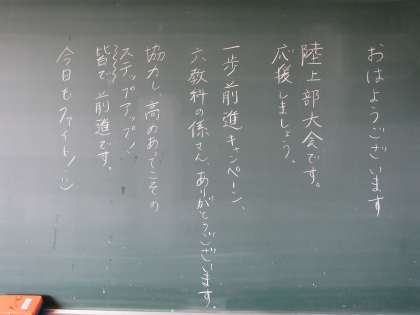 おはようございます
陸上部大会です。
応援しましょう。
一歩前進キャンペーン、
六教科の係さん、ありがとうございます。
協力し、高めあってこその
ステップアップ!
皆で前進です。
今日もファイト!:)